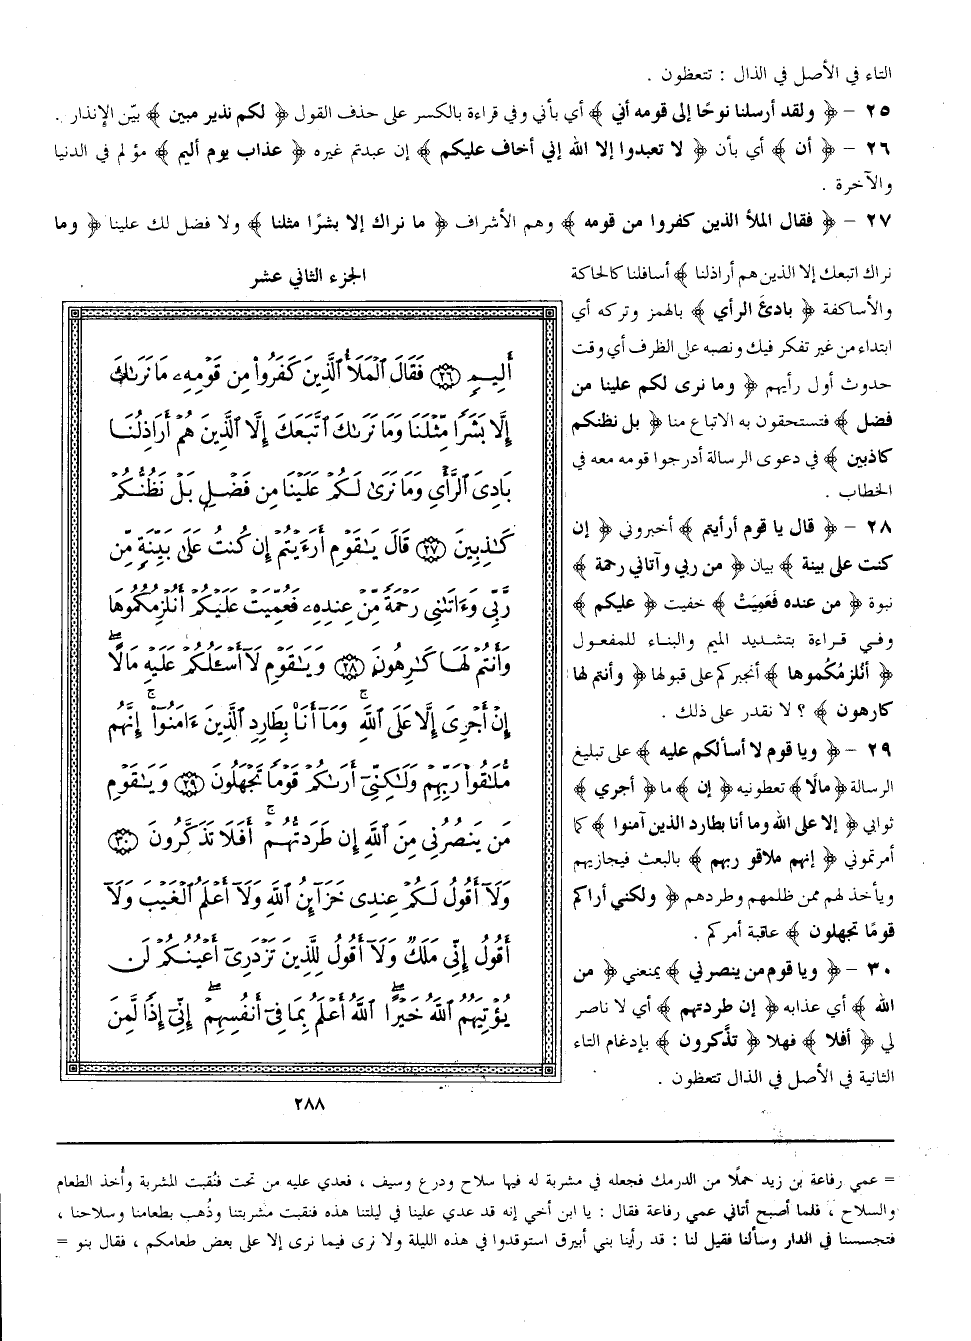 التاء في الأصل في الذال : تتعظون .
٢٥ - ﴿ ولقد أرسلنا نوحًا إلى قومه أني ﴾ أي بأني وفي قراءة بالكسر على حذف القول ﴿ لكم نذير مبين ﴾ بيّن الإنذار .
٢٦ - ﴿ أن ﴾ أي بأن ﴿ لا تعبدوا إلا الله إني أخاف عليكم ﴾ إن عبدتم غيره ﴿ عذاب يوم أليم ﴾ مؤلم في الدنيا
والآخرة .
٢٧ - ﴿ فقال الملأ الذين كفروا من قومه ﴾ وهم الأشراف ﴿ ما نراك إلا بشرًا مثلنا ﴾ ولا فضل لك علينا ﴿ وما
نراك اتبعك إلا الذين هم أراذلنا ﴾ أسافلنا كالحاكة
والأساكفة ﴿ بادئَ الرأي ﴾ بالهمز وتركه أي
ابتداء من غير تفكر فيك ونصبه على الظرف أي وقت
حدوث أول رأيهم ﴿ وما نرى لكم علينا من
فضل ﴾ فتستحقون به الاتباع منا ﴿ بل نظنكم
كاذبين ﴾ في دعوى الرسالة أدرجوا قومه معه في
الخطاب .
٢٨ - ﴿ قال يا قوم أرأيتم ﴾ أخبروني ﴿ إن
كنت على بينة ﴾ بيان ﴿ من ربي وآتاني رحمة ﴾
نبوة ﴿ من عنده فَعَمِيَتْ ﴾ خفيت ﴿ عليكم ﴾
وفي قراءة بتشديد الميم والبناء للمفعول
﴿ أنُلزمُكُموها ﴾ أنجبركم على قبولها ﴿ وأنتم لها
كارهون ﴾ ؟ لا نقدر على ذلك .
٢٩ - ﴿ ويا قوم لا أسألكم عليه ﴾ على تبليغ
الرسالة ﴿ مالًا ﴾ تعطونيه ﴿ إن ﴾ ما ﴿ أجري ﴾
ثوابي ﴿ إلا على الله وما أنا بطارد الذين آمنوا ﴾ كما
أمرتموني ﴿ إنهم ملاقو ربهم ﴾ بالبعث فيجازيهم
ويأخذ لهم ممن ظلمهم وطردهم ﴿ ولكني أراكم
قومًا تجهلون ﴾ عاقبة أمركم .
٣٠ - ﴿ ويا قوم من ينصرني ﴾ يمنعني ﴿ من
الله ﴾ أي عذابه ﴿ إن طردتهم ﴾ أي لا ناصر
لي ﴿ أفلا ﴾ فهلا ﴿ تذَّكرون ﴾ بإدغام التاء
الثانية في الأصل في الذال تتعظون .
الجزء الثاني عشر
أَلِيمٍ ٢٦ فَقَالَ ٱلْمَلَأُ ٱلَّذِينَ كَفَرُوا۟ مِن قَوْمِهِۦ مَا نَرَىٰكَ
إِلَّا بَشَرًا مِّثْلَنَا وَمَا نَرَىٰكَ ٱتَّبَعَكَ إِلَّا ٱلَّذِينَ هُمْ أَرَاذِلُنَا
بَادِىَ ٱلرَّأْىِ وَمَا نَرَىٰ لَكُمْ عَلَيْنَا مِن فَضْلٍۭ بَلْ نَظُنُّكُمْ
كَـٰذِبِينَ ٢٧ قَالَ يَـٰقَوْمِ أَرَءَيْتُمْ إِن كُنتُ عَلَىٰ بَيِّنَةٍ مِّن
رَّبِّى وَءَاتَىٰنِى رَحْمَةً مِّنْ عِندِهِۦ فَعُمِّيَتْ عَلَيْكُمْ أَنُلْزِمُكُمُوهَا
وَأَنتُمْ لَهَا كَـٰرِهُونَ ٢٨ وَيَـٰقَوْمِ لَآ أَسْـَٔلُكُمْ عَلَيْهِ مَالًاۖ
إِنْ أَجْرِىَ إِلَّا عَلَى ٱللَّهِۚ وَمَآ أَنَا۠ بِطَارِدِ ٱلَّذِينَ ءَامَنُوٓا۟ۚ إِنَّهُم
مُّلَـٰقُوا۟ رَبِّهِمْ وَلَـٰكِنِّىٓ أَرَىٰكُمْ قَوْمًا تَجْهَلُونَ ٢٩ وَيَـٰقَوْمِ
مَن يَنصُرُنِى مِنَ ٱللَّهِ إِن طَرَدتُّهُمْۚ أَفَلَا تَذَكَّرُونَ ٣٠
وَلَآ أَقُولُ لَكُمْ عِندِى خَزَآئِنُ ٱللَّهِ وَلَآ أَعْلَمُ ٱلْغَيْبَ وَلَآ
أَقُولُ إِنِّى مَلَكٌ وَلَآ أَقُولُ لِلَّذِينَ تَزْدَرِىٓ أَعْيُنُكُمْ لَن
يُؤْتِيَهُمُ ٱللَّهُ خَيْرًاۖ ٱللَّهُ أَعْلَمُ بِمَا فِىٓ أَنفُسِهِمْۖ إِنِّىٓ إِذًا لَّمِنَ
٢٨٨
= عمي رفاعة بن زيد حملًا من الدرمك فجعله في مشربة له فيها سلاح ودرع وسيف ، فعدي عليه من تحت فنُقبت المشربة وأُخذ الطعام
والسلاح ، فلما أصبح أتاني عمي رفاعة فقال : يا ابن أخي إنه قد عدي علينا في ليلتنا هذه فنقبت مشربتنا وذُهب بطعامنا وسلاحنا ،
فتجسسنا في الدار وسألنا فقيل لنا : قد رأينا بني أبيرق استوقدوا في هذه الليلة ولا نرى فيما نرى إلا على بعض طعامكم ، فقال بنو =